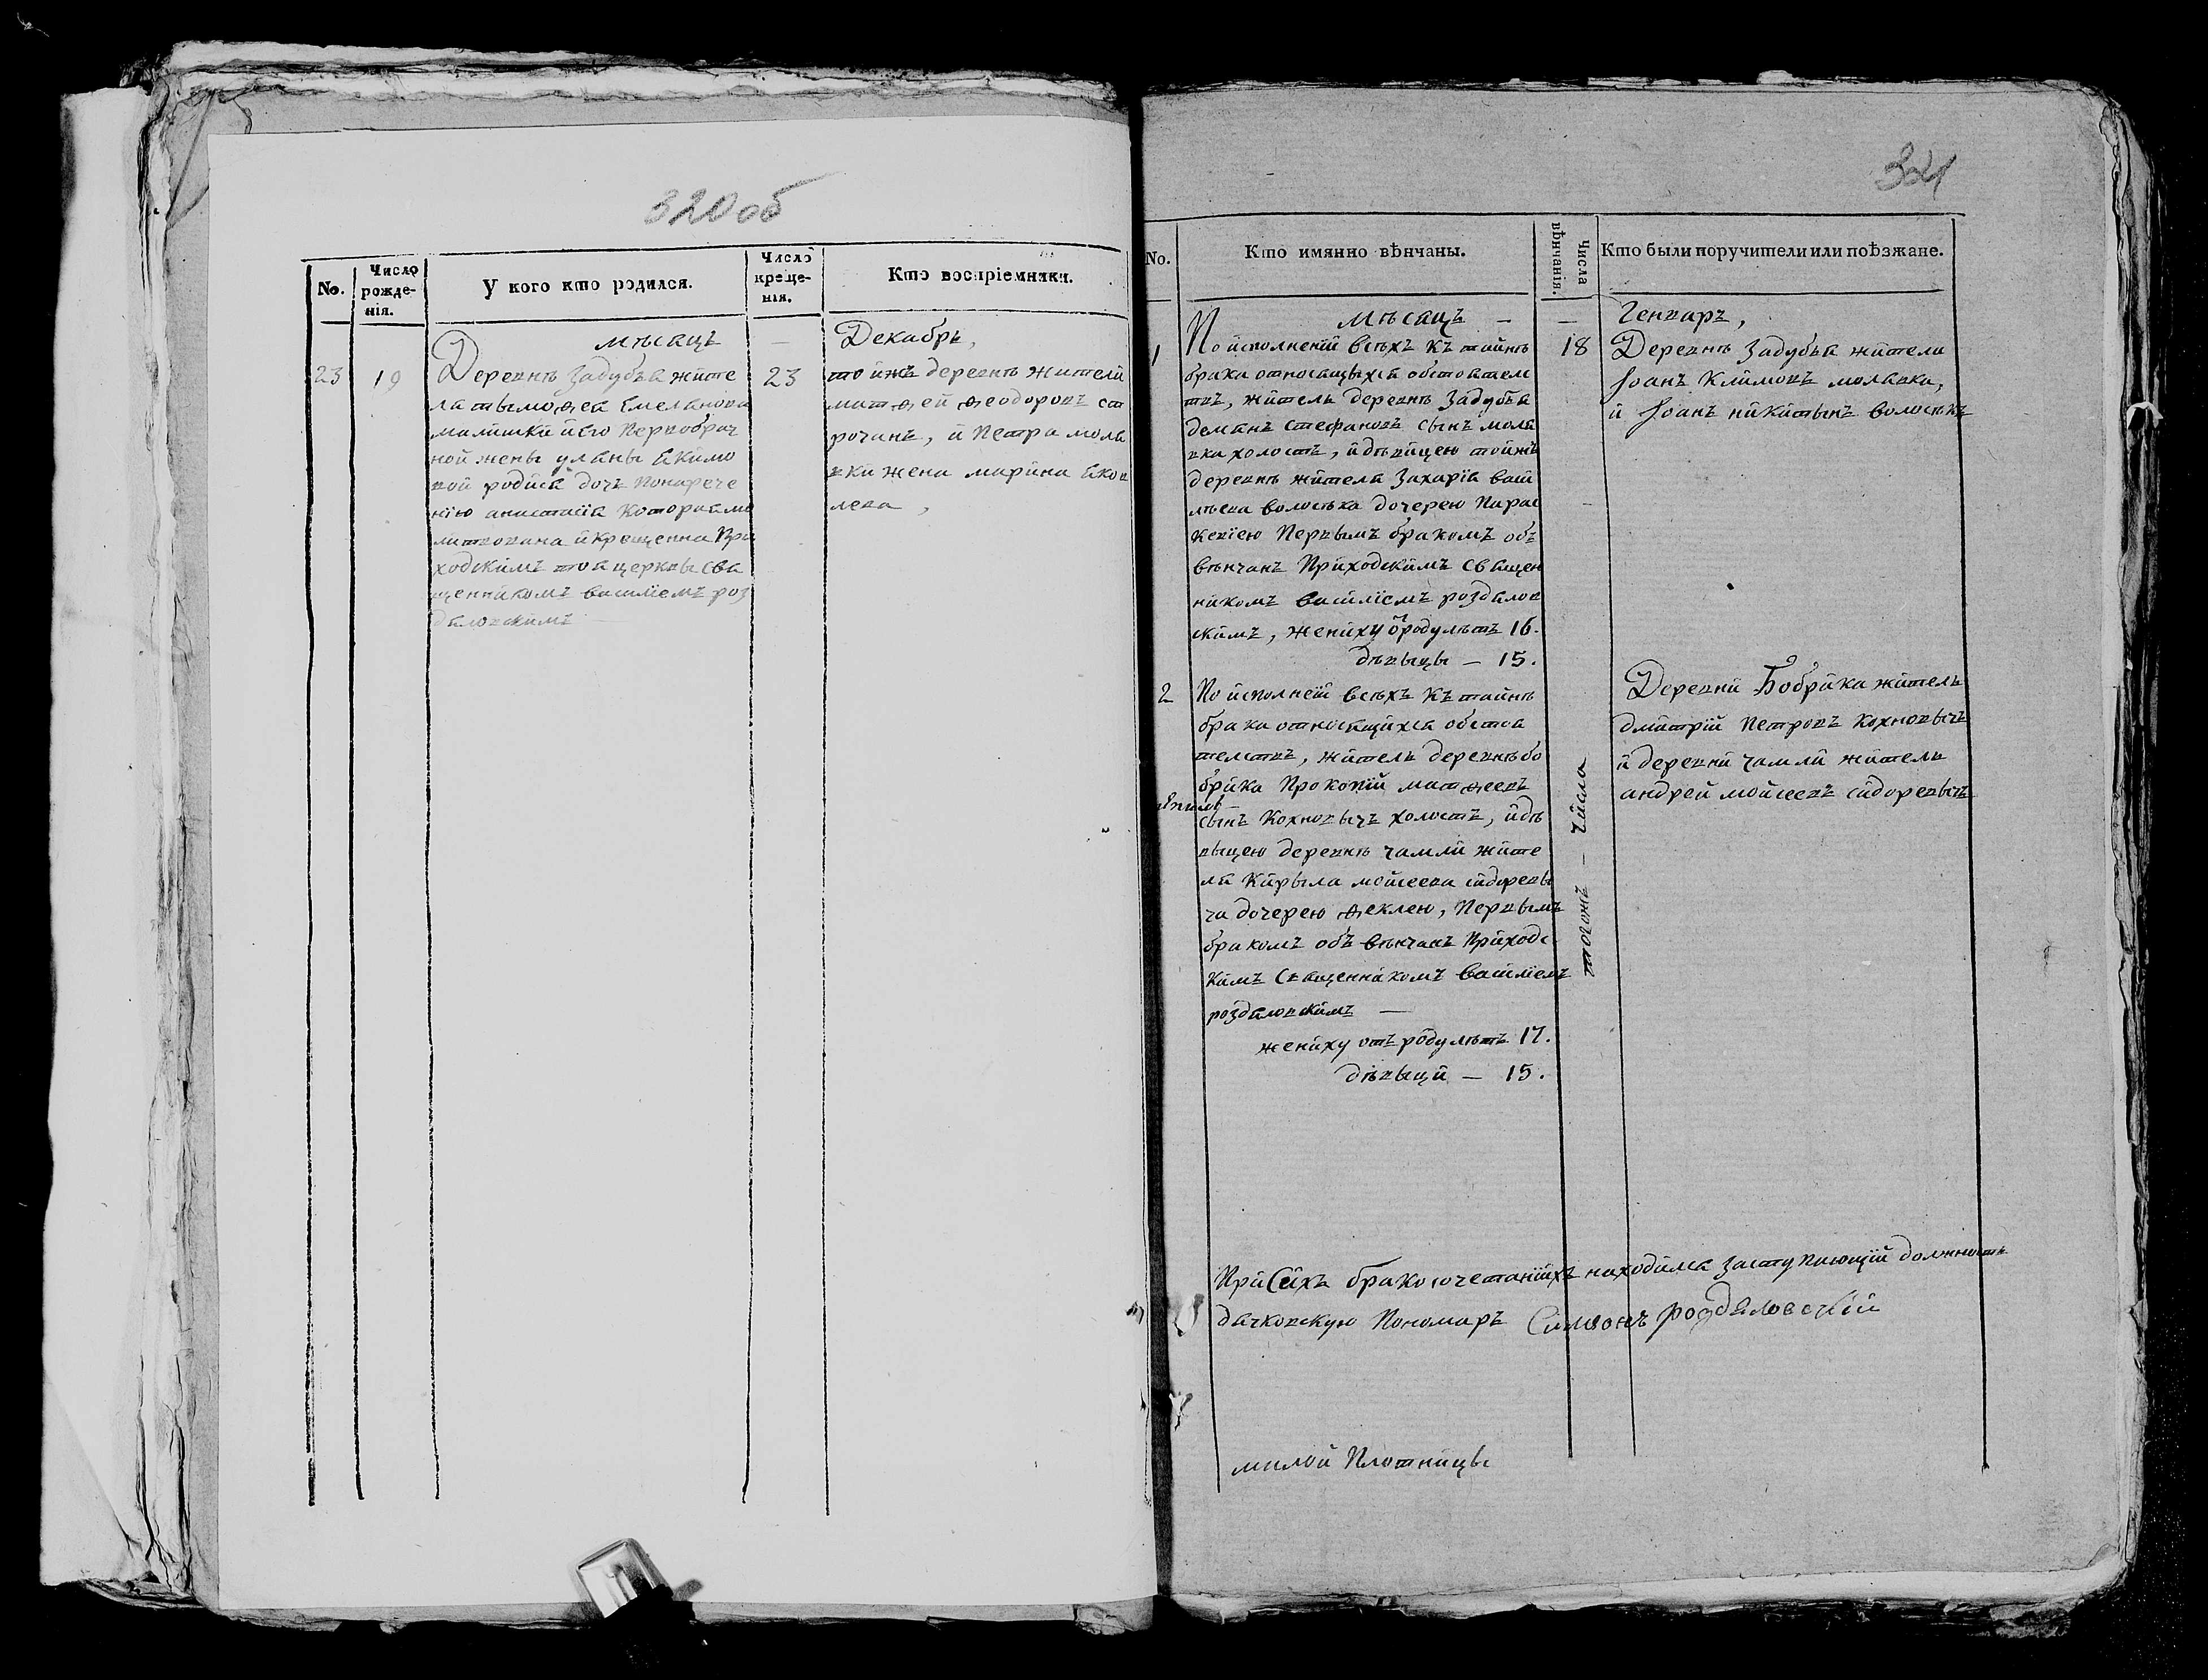 320 об
No.
Число рожде-нія.
У кого кто родился.
Число креще-нія.
Кто воспріемники.
мѣсацъ — Декабрь,
23
19
Деревнѣ Задубья жите
ля тымоѳея Емелянова
малишки и его Первобрач
ной жены уляны Якимо
вой родися дочъ Понарече
нію анастасія Которая мо
литвована и крещенна При
ходскимъ тоя церквы свя
щенникомъ василіемъ роз
дяловскимъ —
23
той жъ деревнѣ жители
матѳей ѳеодоровъ ст
рочанъ, и Петра моля
вки жена марина Яков
лева,
321
No.
Кто имянно вѣнчаны.
Числа вѣнчанія.
Кто были поручители или поѣзжане.
мѣсацъ — — Генваръ,
1
По исполненіи всѣхъ къ тайнѣ
брака относящыхся обстоятел
твъ, житель деревнѣ Задубья
демянъ стефановъ сынъ моля
вка холостъ, и дѣвицею той жъ
деревнѣ жителя Захарія васи
лѣева волосѣка дочерею Парас
кевіею Первымъ бракомъ объ
вѣнчанъ Приходскимъ священ
никомъ василіемъ роздялов
скимъ, жениху от роду лѣтъ 16.
дѣвыцы — 15.
18
Деревнѣ Задубья жители
Іоанъ Климовъ молявка,
и Іоанъ никитынъ волосѣкъ
2
По исполнеіи всѣхъ къ тайнѣ
брака относящихся обстоя
телствъ, житель деревнѣ бо
брика Прокопій матѳеевъ
сынъ Кохновычъ холостъ, и дѣ
выцею деревнѣ чамли жите
ля Кирыла моисеева сидоревы
ча дочерею ѳеклею, Первымъ
бракомъ объ вѣнчанъ Приходс
кимъ Священникомъ василіемъ
роздяловскимъ —
жениху отъ роду лѣтъ 17.
дѣвыци — 15.
тогожъ — числа
Деревни Бобрика житель
дмитрій Петровъ Кохновычъ
и деревни чамли житель
андрей мойсеевъ сидоревычъ
При Сихъ бракосочетаніихъ находился заступающій должность
дячковскую Пономаръ Симеонъ роздяловскій
малой Плотницы